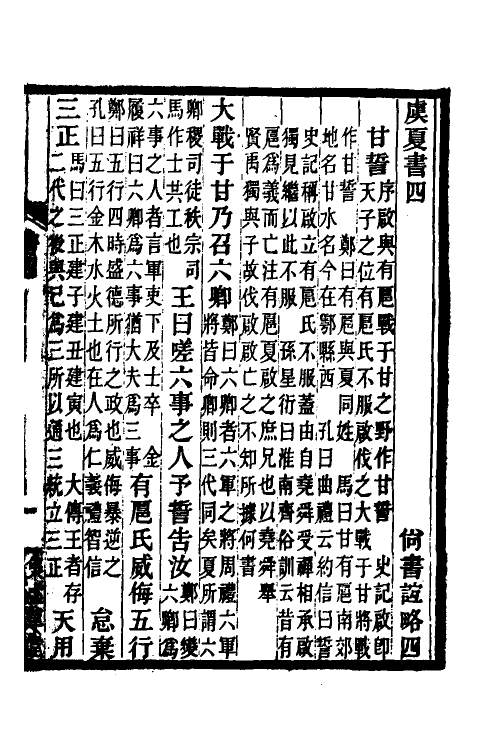 虞夏書四 尚書誼略四
甘誓 序啟與有扈戰于甘之野作甘誓 史記啟即
天子之位有扈氏不服啟伐之大戰于甘將戰
作甘誓 鄭曰有扈與夏同姓 馬曰甘有扈南郊
地名甘水名今在鄠縣西 孔曰曲禮云約信曰誓
史記稱啟立有扈氏不服蓋由自堯舜受禪相承啟
獨見繼以此不服 孫星衍曰淮南齊俗訓云昔有
扈爲義而亡注有扈夏啟之庶兄也以堯舜舉
賢禹獨與子故伐啟啟亡之不知所據何書
大戰于甘乃召六卿 鄭曰六卿者六軍之將周禮六軍
將皆命卿則三代同矣夏所謂六
卿稷司徒秩宗司
馬作士共工也 王曰嗟六事之人予誓告汝 鄭曰變
六卿爲
六事之人者言軍吏下及士卒 金
履祥曰六卿爲六事猶大夫爲三事 有扈氏威侮五行
鄭曰五行四時盛德所行之政也威侮暴逆之
孔曰五行金木水火土也在人爲仁義禮智信 怠棄
三正 馬曰三正建子建丑建寅也 大傳王者存
二代之後與己爲三所以通三統立三正 天用